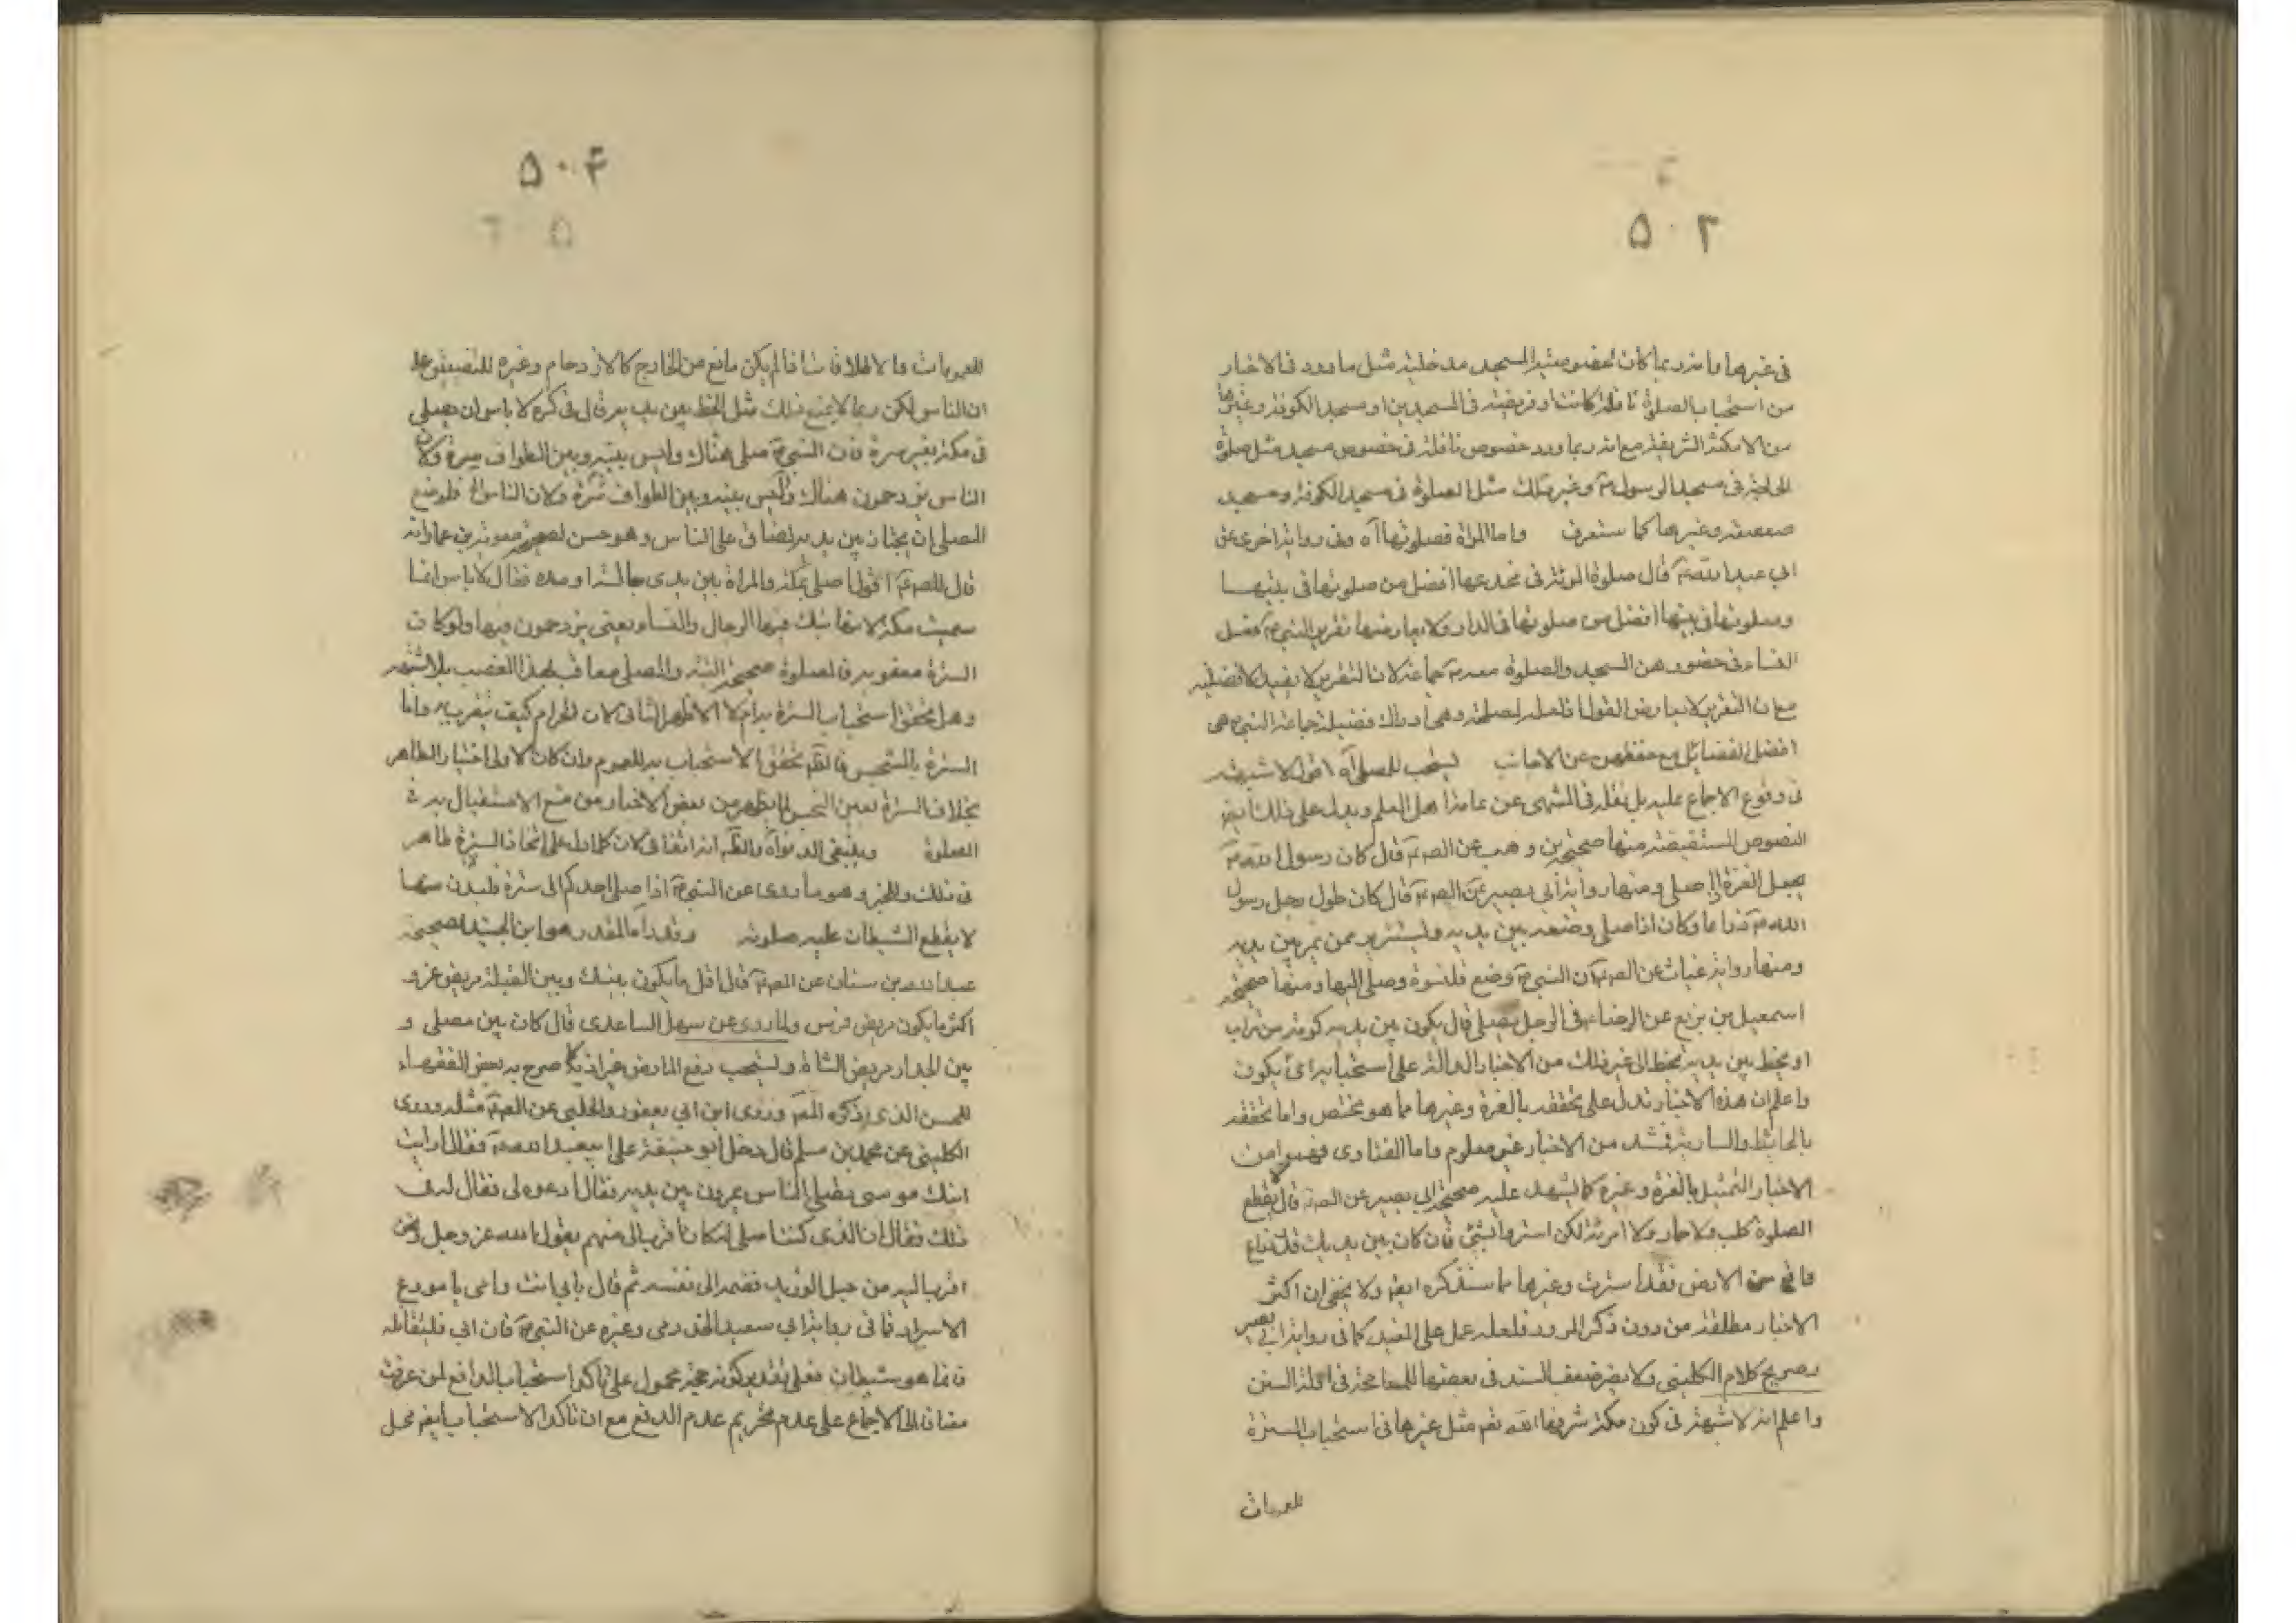 ۵۰۳
فى غيرها وانه ربما كان لخصوصية المسجد مدخلية مثل ما ورد فى الاخبار
من استحباب الصلوة نافلة كانت او فريضة فى المسجدين او مسجد الكوفة وغيرها
من الامكنة الشريفة مع انه ربما ورد خصوص نافلة فى خصوص مسجد مثل صلوة
الحاجة فى مسجد الرسول ص وغير ذلك مثل الصلوة فى مسجد الكوفة ومسجد
صعصعة وغيرها كما ستعرف واما المراة فصلوتها آه وفى رواية اخرى عن
ابي عبد الله ع قال صلوة المرئة فى مخدعها افضل من صلوتها فى بيتها
وصلوتها فى بيتها افضل من صلوتها فى الدار ولا يعارضها تقرير النبي ص فعل
النساء فى حضورهن المسجد والصلوة معه ص جماعة لان التقرير لا يفيد الافضلية
مع ان التقرير لا يعارض القول اذ لعله لمصلحة وهى ادراك فضيلة جماعة النبي ص هى
افضل الفضائل مع حفظهن عن الاجانب يستحب للمصلى آه اقول لا شبهة
فى وقوع الاجماع عليه بل نقله فى المنتهى عن عامة اهل العلم ويدل على ذلك ايضا
النصوص المستفيضة منها صحيحة بن وهب عن الصه ع قال كان رسول الله ص
يجعل العنزة اذا صلى ومنها رواية ابى بصير عن الصه ع قال كان طول رحل رسول
الله ص ذراعا وكان اذا صلى وضعه بين يديه وليستتر به ممن يمر بين يديه
ومنها رواية غياث عن الصه ع ان النبي ص وضع قلنسوة وصلى اليها ومنها صحيحة
اسمعيل بن بزيع عن الرضا ع فى الرجل يصلى قال يكون بين يديه كومة من تراب
او يخط بين يديه بخط الى غير ذلك من الاخبار الدالة على استحبابه اى يكون
واعلم ان هذه الاخبار تدل على تحققه بالعنزة وغيرها مما هو مختص واما تحققه
بالحائط والسارية من الاخبار غير معلوم واما الفتاوى فهموا من
الاخبار التمثيل بالعنزة وغيره كما يشهد عليه صحيحة ابى بصير عن الصه ع قال لا يقطع
الصلوة كلب ولا حمار ولا امرئة لكن استروا بشئ فان كان بين يديك قدر ذراع
رافع من الارض فقد استترت وغيرها مما سنذكره ايضا ولا يخفى ان اكثر
الاخبار مطلقة من دون ذكر المرور فلعله عمل على المقيد كما فى رواية ابى بصير
بصريح كلام الكلينى ولا يضر ضعف السند فى بعضها للمسامحة فى ادلة السنن
واعلم انه لا شبهة فى كون مكة شرفها الله تعم مثل غيرها فى استحباب السترة
للعمومات
۵۰۴
للعمومات والاطلاقات اذا لم يكن مانع من الخارج كالازدحام وغيره للتضييق على
ان الناس لكن ربما لا يمنع ذلك مثل الخط بين يديه قال فى كره لا باس ان يصلى
فى مكة بغير سترة فان النبي ص صلى هناك وليس بينه وبين الطواف سترة ولان
الناس يزدحمون هناك وليس بينه وبين الطواف سترة ولان الناس الخ فلو منع
المصلى ان يجتاز بين يديه لضاق على الناس وهو حسن لصحيحة معوية بن عمار انه
قال للصه ع اقول اصلى بمكة والمراة بين يدى جالسة او ماره فقال لا باس انما
سميت مكة لانها تبك فيها الرجال والنساء يعنى يزدحمون فيها ولو كانت
السترة مغصوبة فالصلوة صحيحة والمصلى معاقب بهذا الغصب بلا شبهة
وهل يتحقق استحباب السترة به ام لا الاظهر الثانى لان الحرام كيف يتقرب به واما
السترة بالنجس فالظه تحقق الاستحباب به للعموم وان كان الاولى اختيار الطاهر
بخلاف السترة بعين النجس لما يظهر من بعض الاخبار من منع الاستقبال به فى
الصلوة وينبغى الدنو آه والظه انه اتفاقى لان كلما دل على اتخاذ السترة ظاهر
فى ذلك وللخبر وهو ما روى عن النبي ص اذا صلى احدكم الى سترة فليدن منها
لا يقطع الشيطان عليه صلوته وقدره آه المقدر هو ابن الجنيد لصحيحة
عبد الله بن سنان عن الصه ع قال اقل ما يكون بينك وبين القبلة مربض عنز و
اكثر ما يكون مربض فرس ولما روى عن سهل الساعدى قال كان بين مصلى و
بين الجدار مربض الشاة ويستحب دفع المار من غير اذية كما صرح به بعض الفقهاء
للحسن الذى ذكره المصه وروى ابن ابى يعفور والحلبى عن الصه ع مثله وروى
الكلينى عن محمد بن مسلم قال دخل ابو حنيفة على ابيعبد الله ع فقال له رايت
ابنك موسى يصلى والناس يمرون بين يديه فقال ادعوه لى فقال له فى
ذلك فقال ان الذى كنت اصلى له كان اقرب الى منهم يقول الله عز وجل ونحن
اقرب اليه من حبل الوريد فضمه الى نفسه ثم قال بابى انت وامى يا مودع
الاسرار فما فى رواية ابى سعيد الخدرى وغيره عن النبي ص فان ابى فليقاتله
فانما هو شيطان فعلى تقدير كونه حجة محمول على تاكد استحباب الدفع لمن عرفت
مضافا الى الاجماع على عدم تحريم عدم الدفع مع ان تاكد الاستحباب ايضا محل